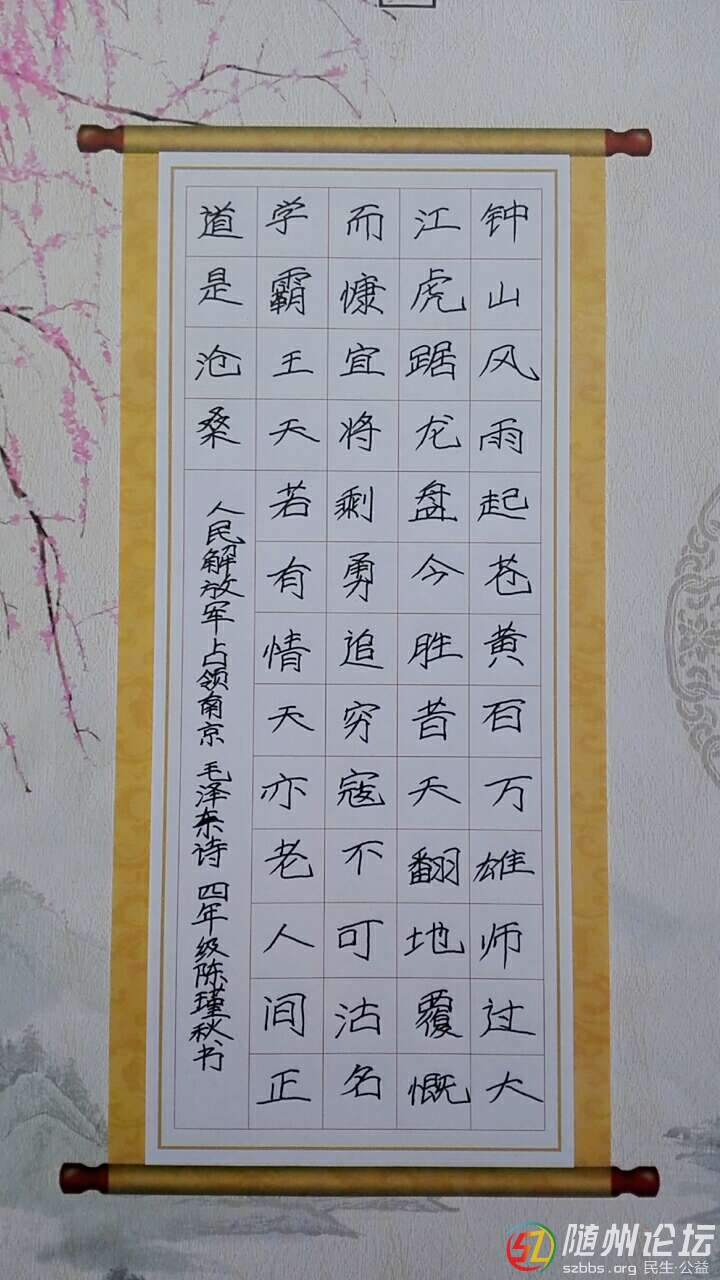 钟山风雨起苍黄百万雄师过大
江虎踞龙盘今胜昔天翻地覆慨
而慷宜将剩勇追穷寇不可沽名
学霸王天若有情天亦老人间正
道是沧桑
人民解放军占领南京 毛泽东诗 四年级陈瑾秋书
随州论坛
szbbs.org 民生·公益